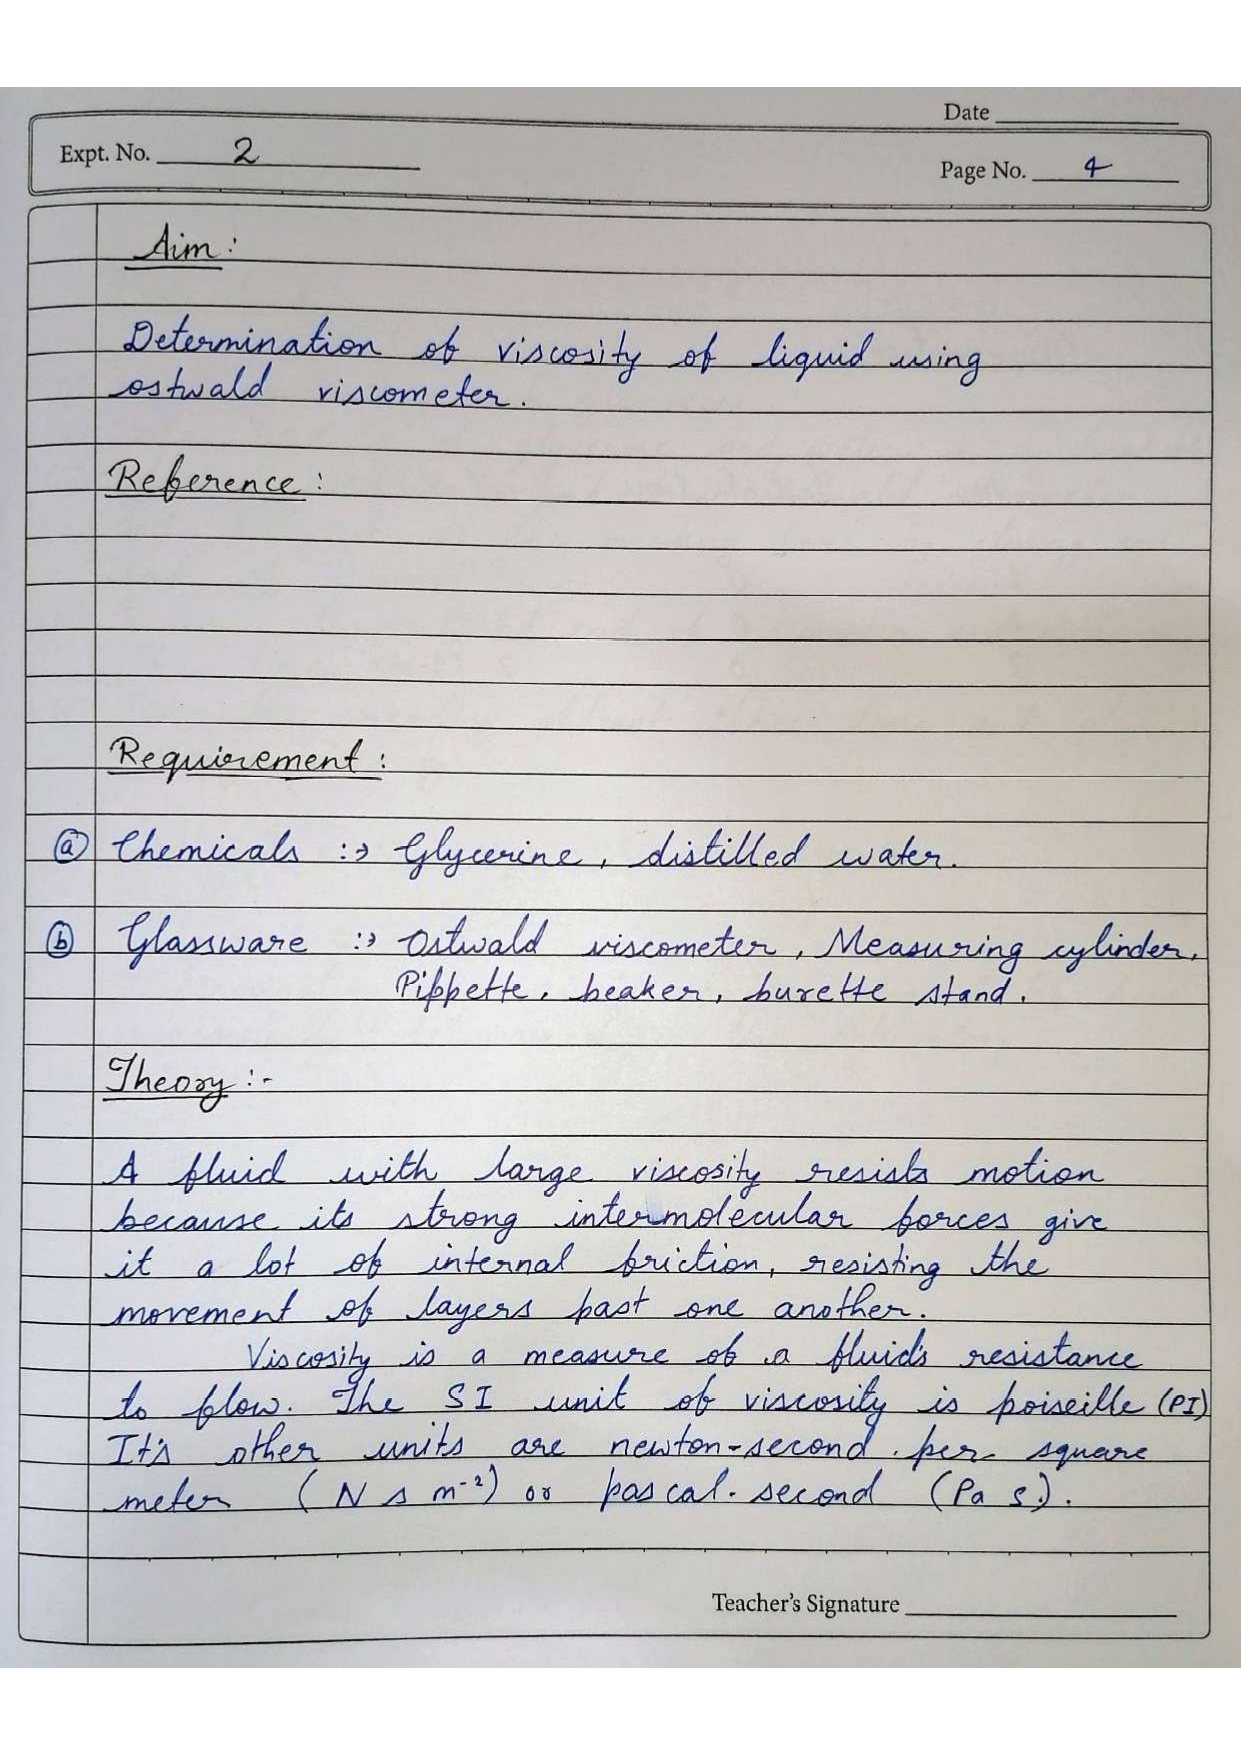 Date
Expt. No. 2
Page No. 4
Aim :
Determination of viscosity of liquid using
ostwald viscometer.
Reference :
Requirement :
(a) Chemicals :→ Glycerine, distilled water.
(b) Glassware :→ Ostwald viscometer, Measuring cylinder,
Pippette, beaker, burette stand.
Theory :-
A fluid with large viscosity resists motion
because its strong intermolecular forces give
it a lot of internal friction, resisting the
movement of layers past one another.
Viscosity is a measure of a fluid's resistance
to flow. The SI unit of viscosity is poiseille (PI)
It's other units are newton-second per square
meter (N s m⁻²) or pascal. second (Pa s).
Teacher's Signature